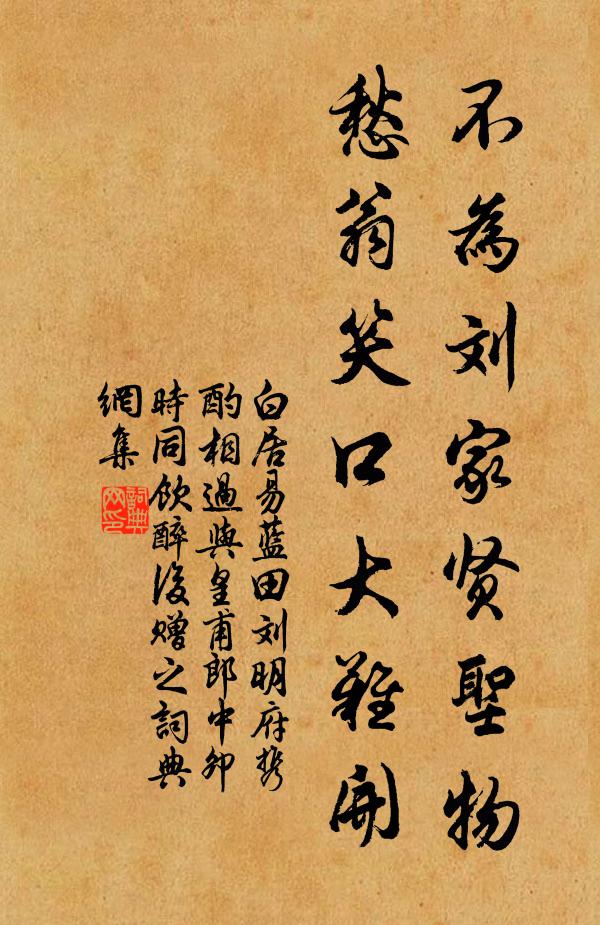 不為刘家贤聖物
愁翁笑口大難開
白居易蓝田刘明府携
酌相過與皇甫郎中卯
時同飲醉後赠之詞典
網集
詞典
网印